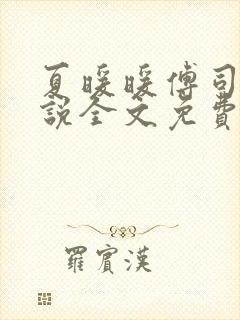 夏暖暖傅司
說全文免費
羅賓漢